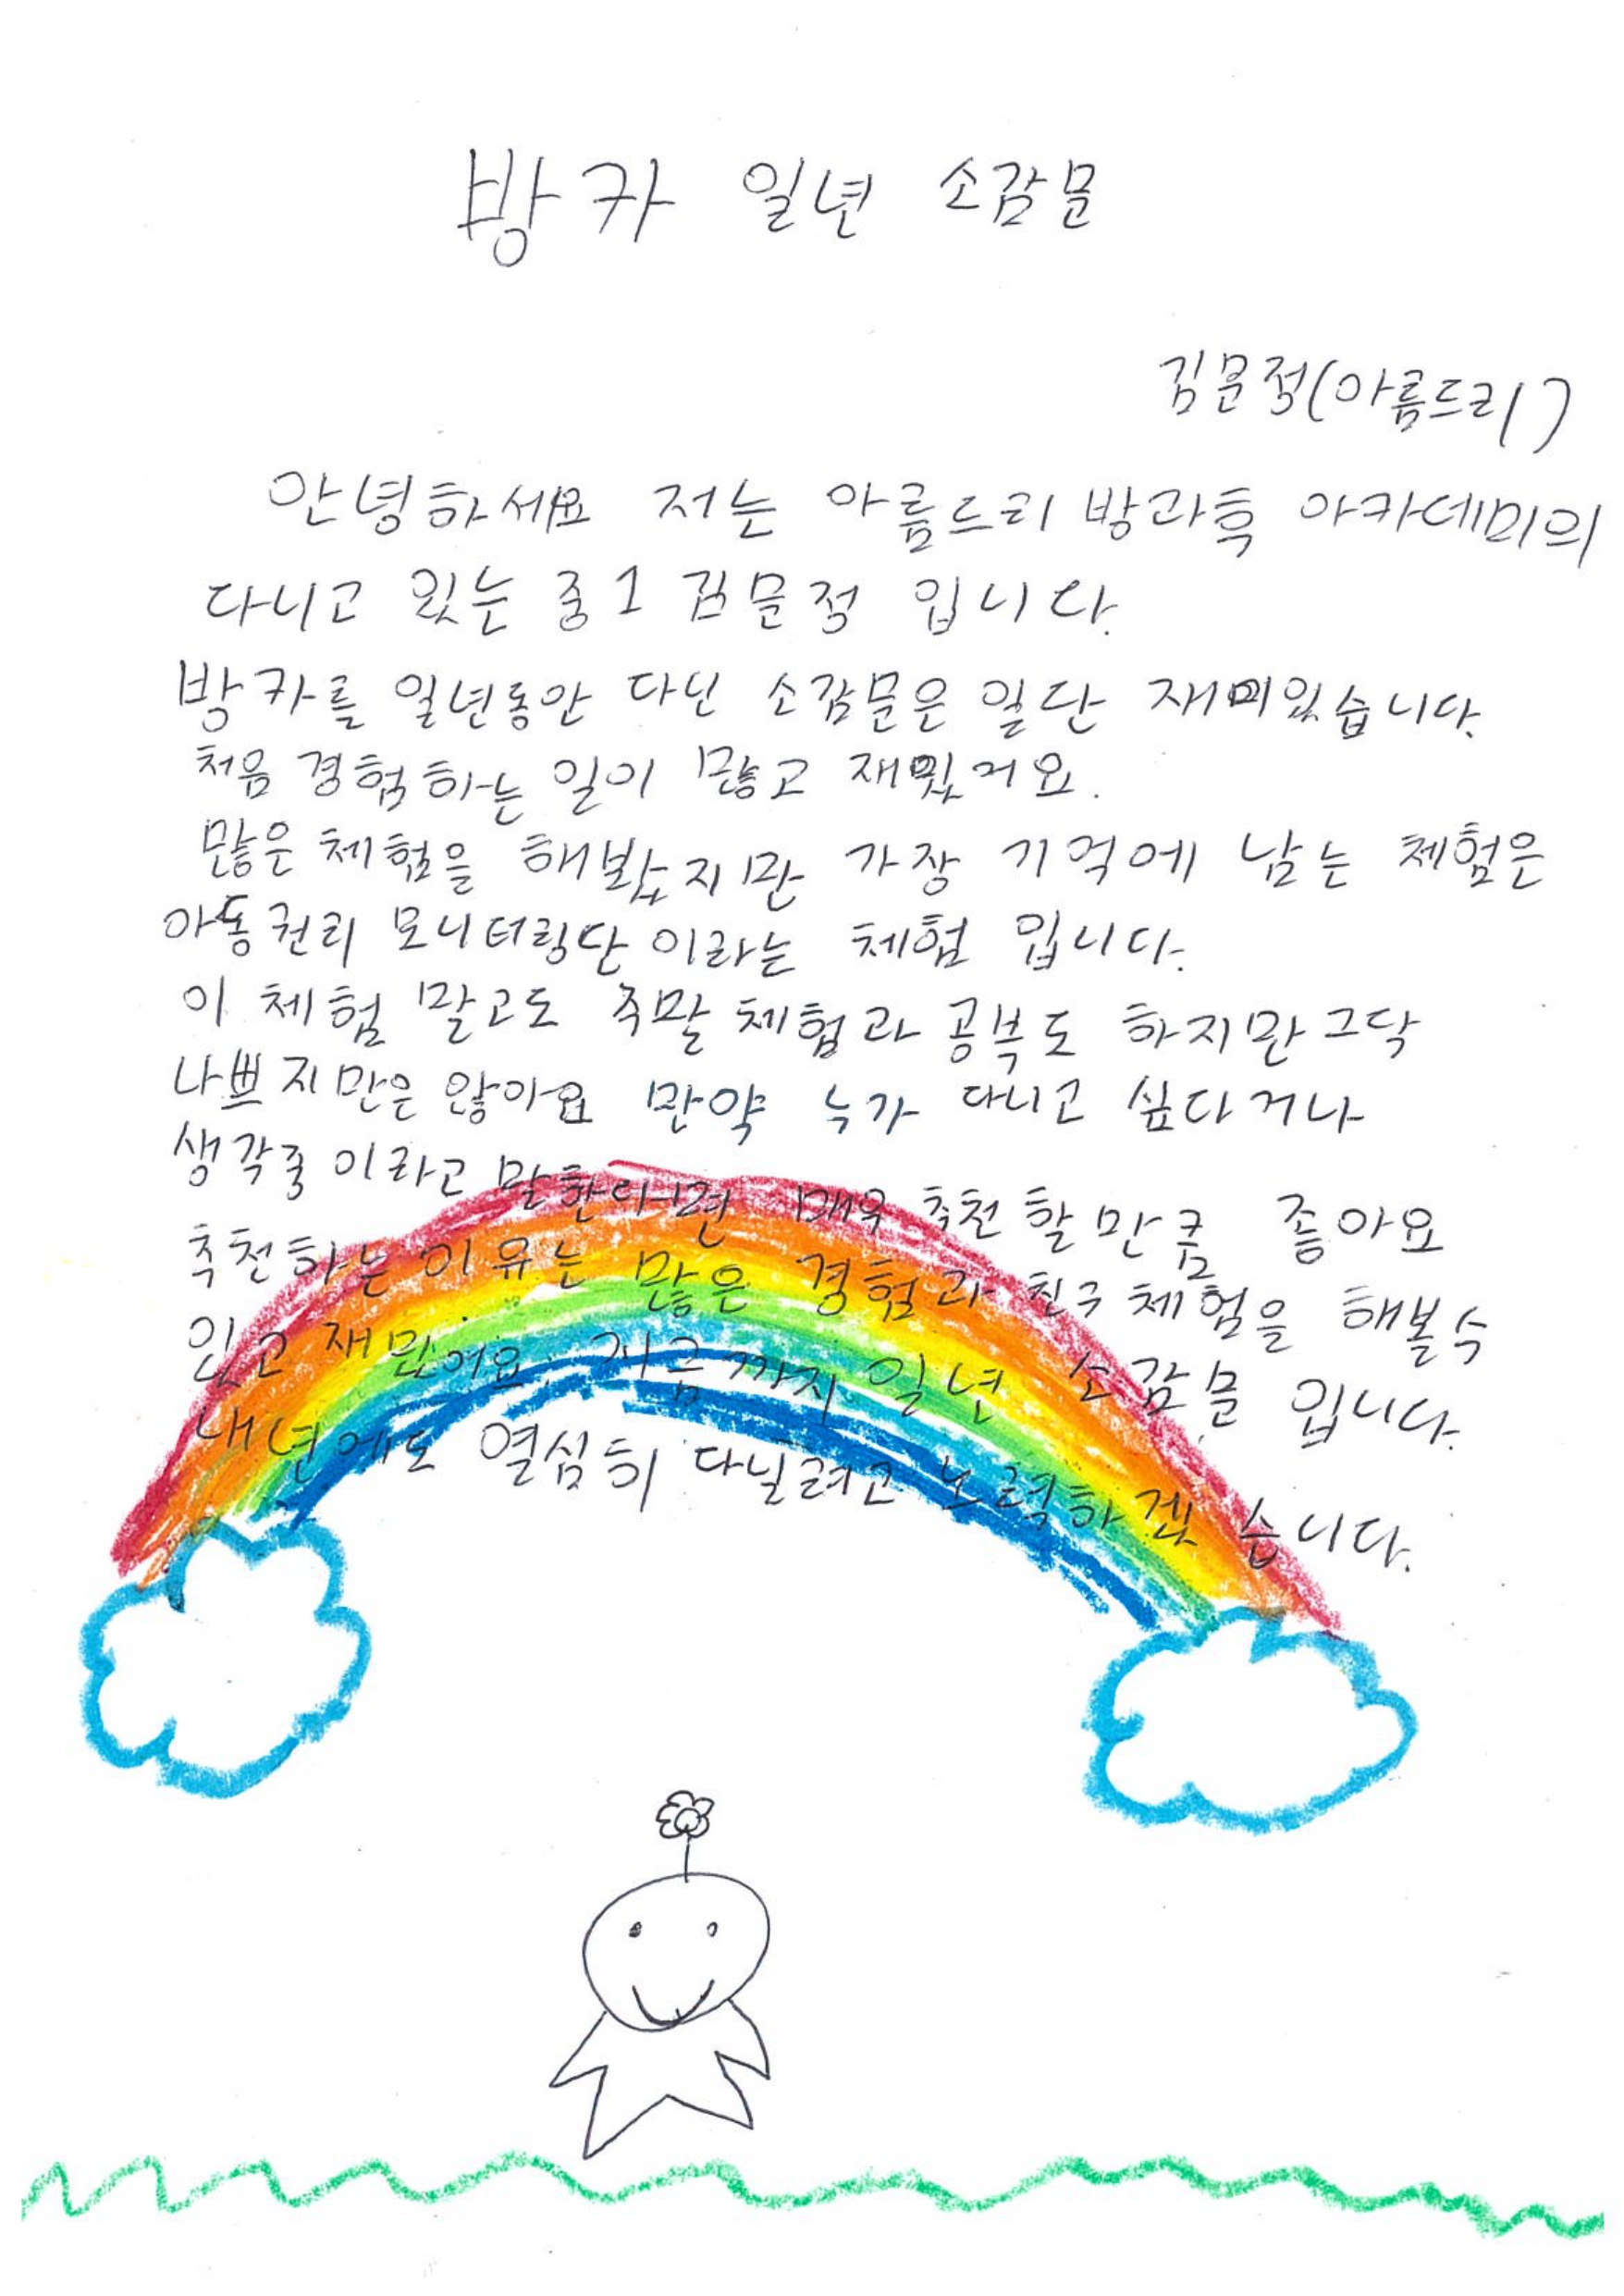 방카 일년 소감문
김문정(아름드리)
안녕하세요 저는 아름드리 방과후 아카데미의
다니고 있는 중1 김문정 입니다.
방카를 일년동안 다닌 소감문은 일단 재미있습니다.
처음 경험하는 일이 많고 재밌거요.
많은 체험을 해봤지만 가장 기억에 남는 체험은
아동권리 모니터링단 이라는 체험 입니다.
이 체험 말고도 주말 체험과 공부도 하지만 그닥
나쁘지만은 않아요 만약 누가 다니고 싶다거나
생각중 이라고 말한다면 매우 추천 할 만큼 좋아요
추천하는 이유는 많은 경험과 친구 체험을 해볼수
있고 재밌어요. 지금까지 일년 소감문 입니다.
내년에도 열심히 다닐려고 노력하겠습니다.